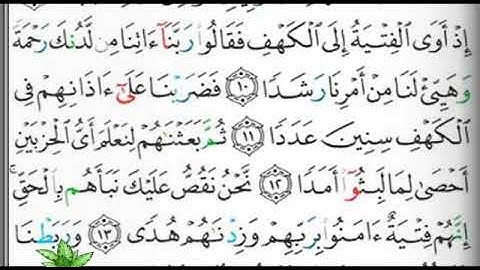 إِذْ أَوَى ٱلْفِتْيَةُ إِلَى ٱلْكَهْفِ فَقَالُوا۟ رَبَّنَآ ءَاتِنَا مِن لَّدُنكَ رَحْمَةً
وَهَيِّئْ لَنَا مِنْ أَمْرِنَا رَشَدًا ١٠ فَضَرَبْنَا عَلَىٰٓ ءَاذَانِهِمْ فِى
ٱلْكَهْفِ سِنِينَ عَدَدًا ١١ ثُمَّ بَعَثْنَٰهُمْ لِنَعْلَمَ أَىُّ ٱلْحِزْبَيْنِ
أَحْصَىٰ لِمَا لَبِثُوٓا۟ أَمَدًا ١٢ نَّحْنُ نَقُصُّ عَلَيْكَ نَبَأَهُم بِٱلْحَقِّ ۚ
إِنَّهُمْ فِتْيَةٌ ءَامَنُوا۟ بِرَبِّهِمْ وَزِدْنَٰهُمْ هُدًى ١٣ وَرَبَطْنَا